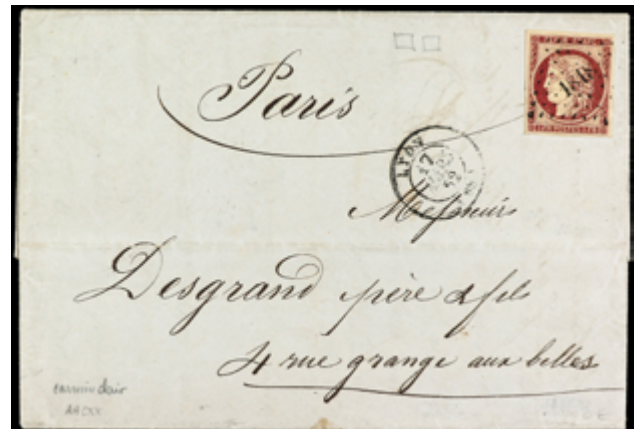 Paris
1818
LYON
17
52
Messieurs
Desgrand père & fils
4 rue grange aux belles
carmin clair